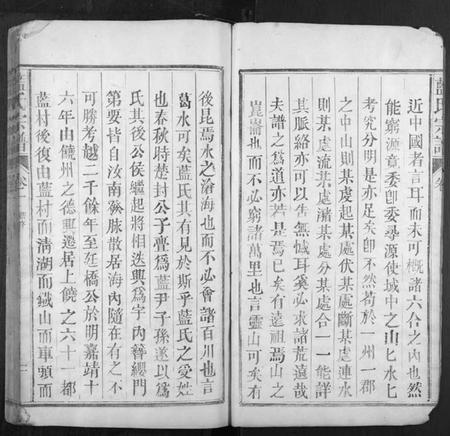 藍氏宗譜
卷
近中國者言耳而未可概諸六合之內也然
能窮源竟委卽委尋源使城中之山匕水匕
考究分明是亦足矣卽不然苟於一州一郡
之中山則某處起某處伏某處斷某處連水
則某處流某處瀦某處分某處合一一能詳
其脈絡亦可以告無憾耳奚必求諸荒遠哉
夫譜之爲道亦若是焉已矣有遠祖焉山之
崑崙也而不必窮諸萬里也言靈山可矣有
後昆焉水之浴海也而不必會諸百川也言
葛水可矣藍氏其有見於斯乎藍氏之受姓
也春秋時楚封公子亹爲藍尹子孫遂以爲
氏其後公侯繼起將相迭興爲宇內簪纓門
第要皆自汝南發脉散居海內隨在有之不
可勝考越二千餘年至廷橋公於明嘉靖十
六年由饒州之德興遷居上饒之六十一都
藍村後復由藍村而清湖而鐵山而車頭而
藍氏宗譜
卷一